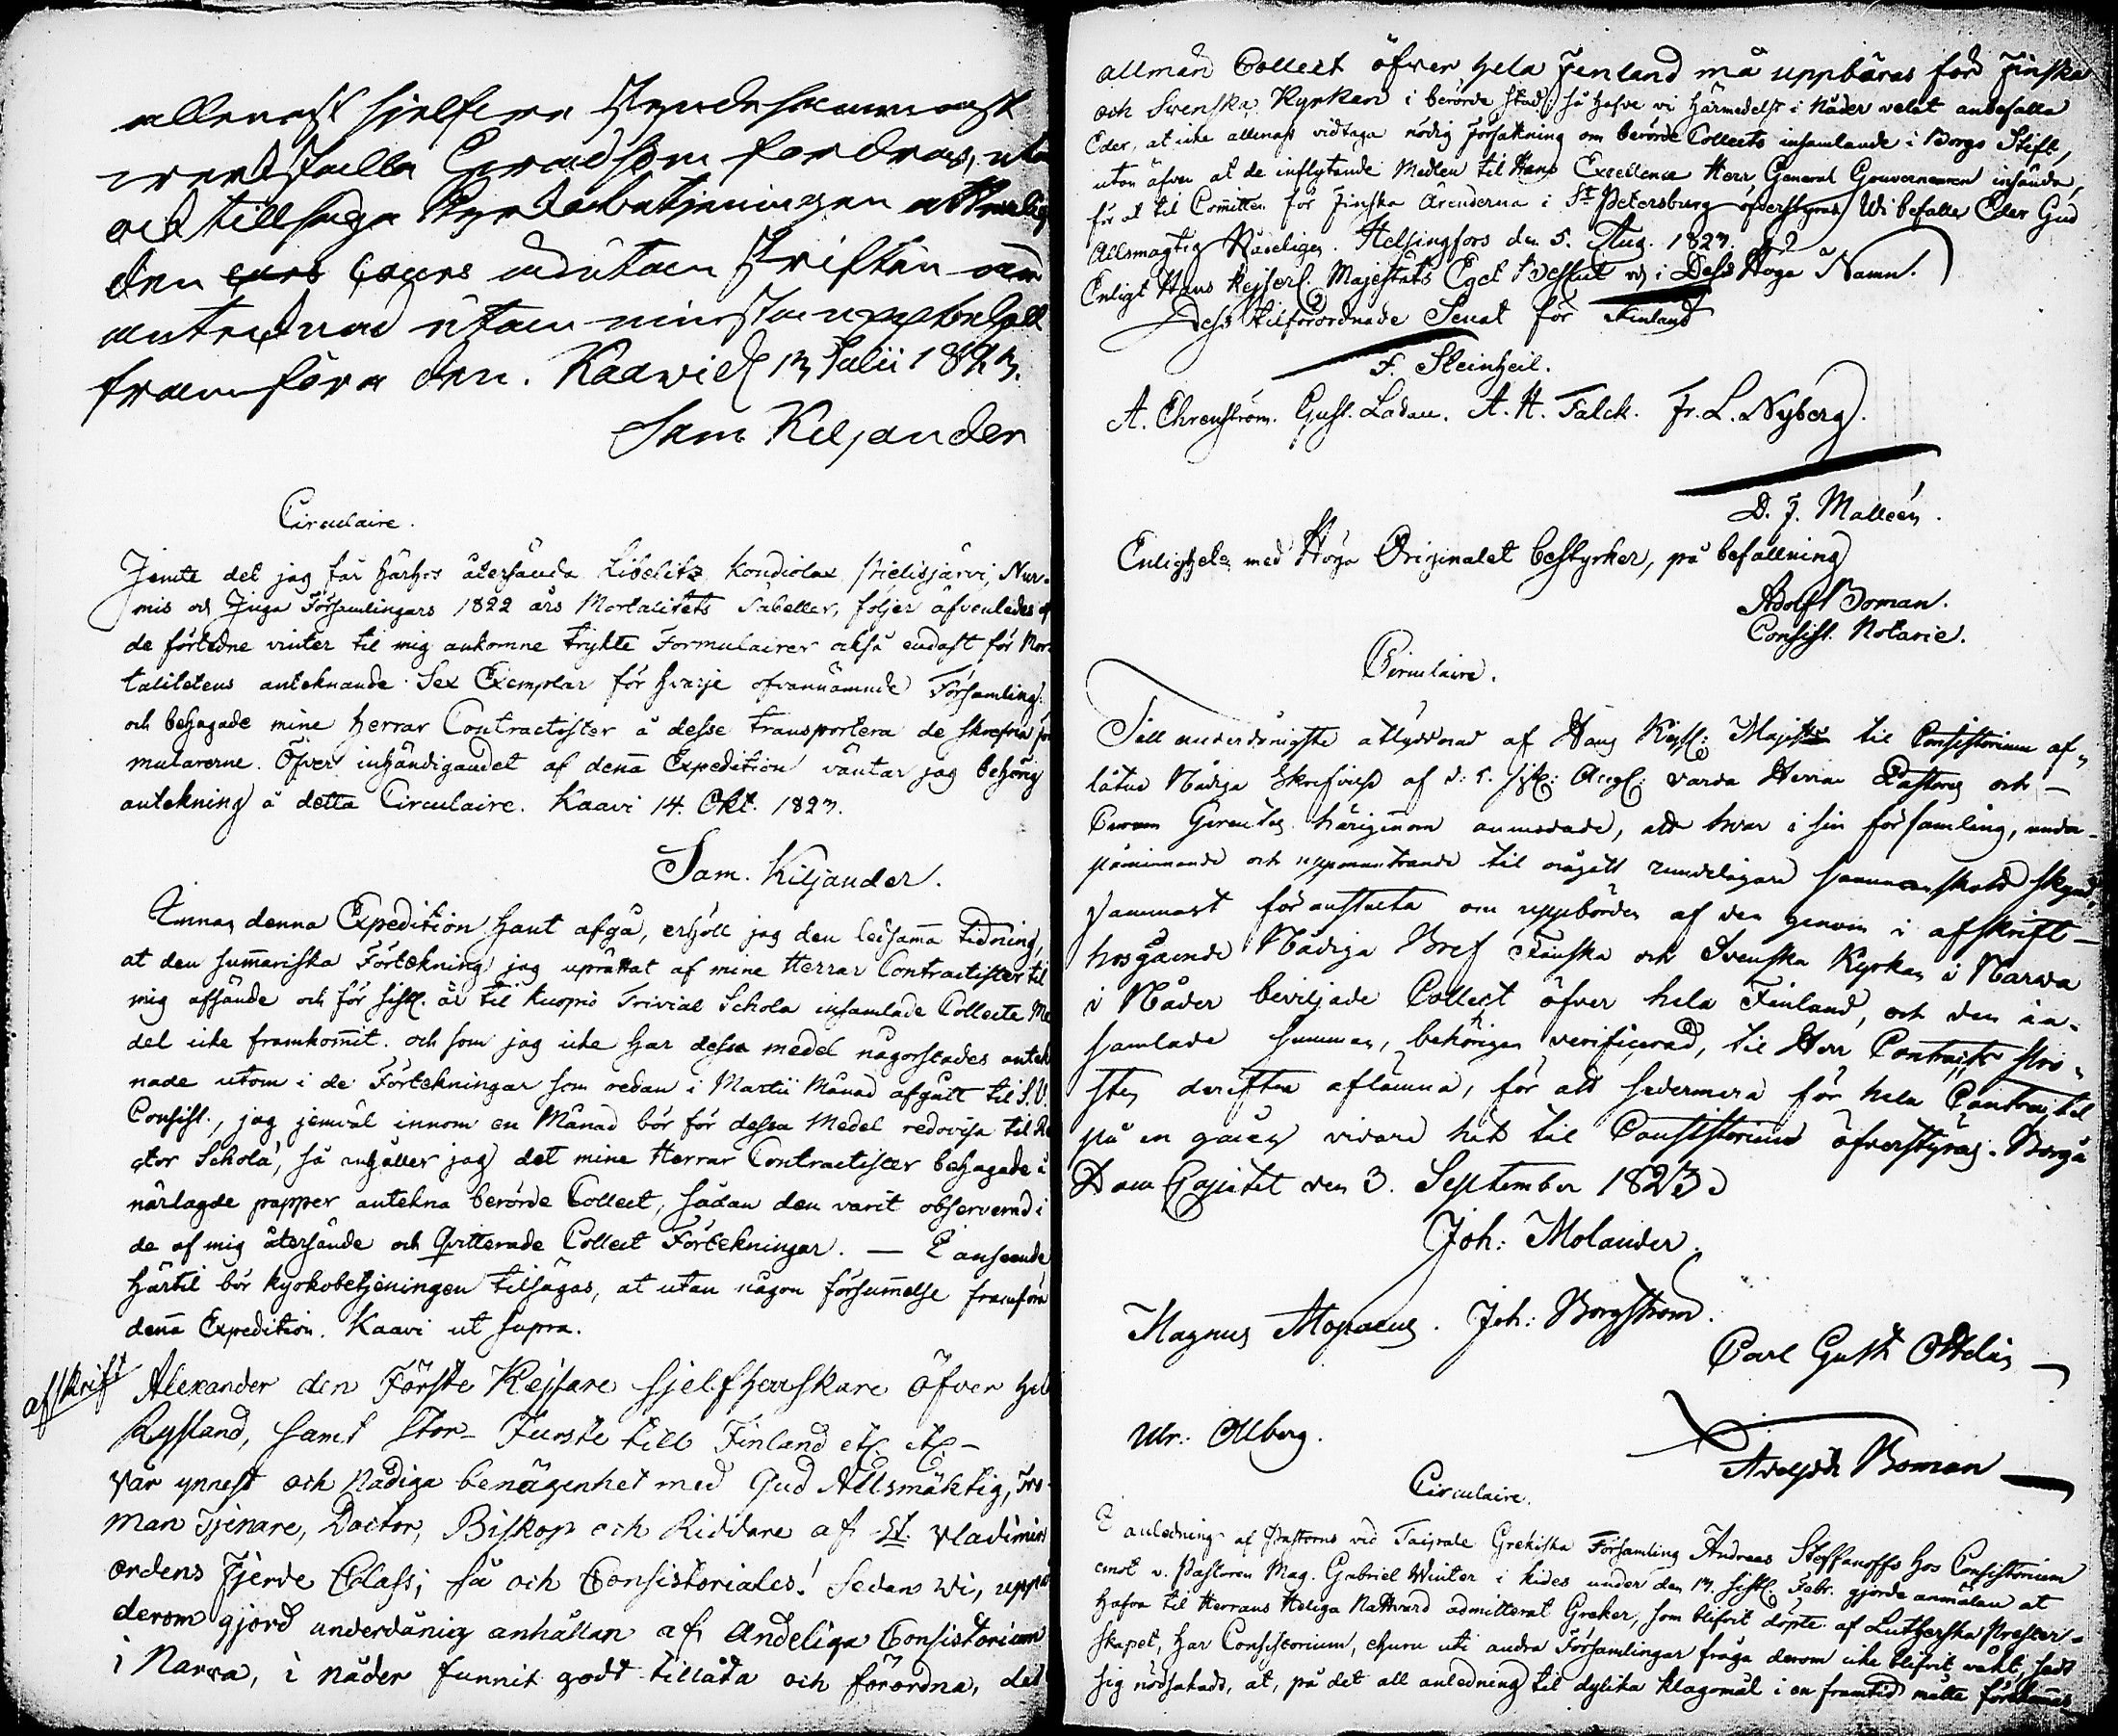 allenast sjelfva skyndesammast
werkställa hvad som fordras, utan
och tillsäga Kyrkobetjeningen att
den cours
utan minsta uppehåll
framföra den. Kaawi d 13 Julii 1823.
Sam Kiljander
Circulaire.
Jemte det jag får härhos återsända Libelitz, Kondiolax, Pielisjärvi, Nur-
mis och Juga Församlingars 1822 års Mortalitets Tabeller, följer äfvenledes af
de förledne vinter til mig ankomne trykte Formulairer också endast för Mor-
talitetens anteknande Sex Exemplar för hvarje ofvannämnde Församling:
och behagade mine Herrar Contractister å desse transportera de skrefna for
mularerne. Öfver inhändigandet af denna Expedition väntar jag behörig
antekning å detta Circulaire. Kaavi 14. Okt. 1823.
Sam. Kiljander.
Innan denna Expedition hant afgå, erhöll jag den ledsamma tidning,
at den summariska Förtekning jag uprättat af mine Herrar Contractister til
mig afsände och för sistl. år til Kuopio Trivial Schola insamlade Collecte Me
del icke framkommit. och som jag icke har dessa medel någorstädes antek
nade utom i de Förtekningar som redan i Martii Månad afgått til S. V.
Consist., jag jemväl innom en Månad bör för dessa Medel redovisa til Re
ctor Scholæ, så anhåller jag det mine Herrar Contractister behagade å
närlagde papper antekna berörde Collect, sådan den varit observerad i
de af mig återsände och qvitterade Collect Förtekningar. — I anseende
härtil bör kyrkobetjeningen tilsägas, at utan någon försummelse framföra
denna Expedition. Kaavi ut supra.
afskrift
Alexander den Förste Kejsare sjelfherrskare Öfver hela
Ryssland, samt Stor-Furste till Finland etc etc -
Vår ynnest och Nådiga benägenhet med Gud Allsmäktig, Tro
man Tjenare, Doctor, Biskop och Riddare af St. Vladimirs
ordens fjerde Class; så och Consistoriales! Sedan Wi, uppå
derom gjord underdånig anhållan af Andeliga Consistorium
i Narva, i nåder funnit godt tillåta och förordna, det
allmän Collect öfver hela Finland må uppbäras för Finska
och Svenska Kyrkan i berörde stad; så hafve vi härmedelst i Nåder velat anbefalla
Eder, at icke allenast vidtaga nödig författning om berörde Collects insamlande i Borgo Stift,
utan äfven at de inflytande Medlen til Hans Excellence Herr General Gouverneuren insända,
för at til Comitteen för Finska Ärenderna i St Petersburg öfverstyras. Wi befalle Eder Gud
Allsmägtig Nådeligen. Helsingfors den 5. Aug. 1823.
Enligt Hans Kejserl. Majestäts Eget Beslut och i Dess Höga Namn.
Dess tilförordnade Senat för Finland
F. Steinheil.
A. Ehrenström. Gust. Ladau. A. H. Falck. Fr. L. Nyberg.
D. J. Malleén.
Enligheten med Höga Originalet bestyrker, på befallning
Adolf Boman.
Consist. Notarie.
Circulaire.
Till underdånigste åtlydnad af Hans Kejs: Majts til Consistorium af-
låtne Nådiga Skrifvelse af d: 5. sistl: Aug: varda Herrar Pastorer och
Curam Gerentes härigenom anmodade, att hvar i sin församling, under
påminnande och uppmuntrande til någått rundeligare sammanskott skynd-
sammast föranstalta om uppbörden af den genom i afskrift
hosgående Nådiga Bref Finska och Svenska Kyrkan i Narva
i Nåder beviljade Collect öfver hela Finland, och den in-
samlade summan, behörigen verificerad, til Herr Contracts Pro-
sten derefter aflämna, för att sedermera för hela Contractet
på en gång vidare hit til Consistorium öfverstyras. Borgå
Dom Capitel den 3. September 1823.
Joh: Molander.
Magnus Alopaeus. Joh: Borgström.
Carl Gust Ottelin
Ulr: Ollberg.
Adolph Boman
Circulaire.
I anledning af Pastorns vid Taipale Grekiska Församling Andreas Steffanoffs hos Consistorium
emot v. Pastoren Mag. Gabriel Winter i Kides under den 13. sistl. Febr. gjorde anmälan at
hafva til Herrans Heliga Nattvard admitterat Greker, som blifvit döpte af Lutherska Prester-
skapet, har Consistorium, ehuru uti andra Församlingar fråga derom icke blifvit väkt, sedt
sig nödsakadt, at, på det all anledning til dylika klagomål i en framtid måtte förekommas